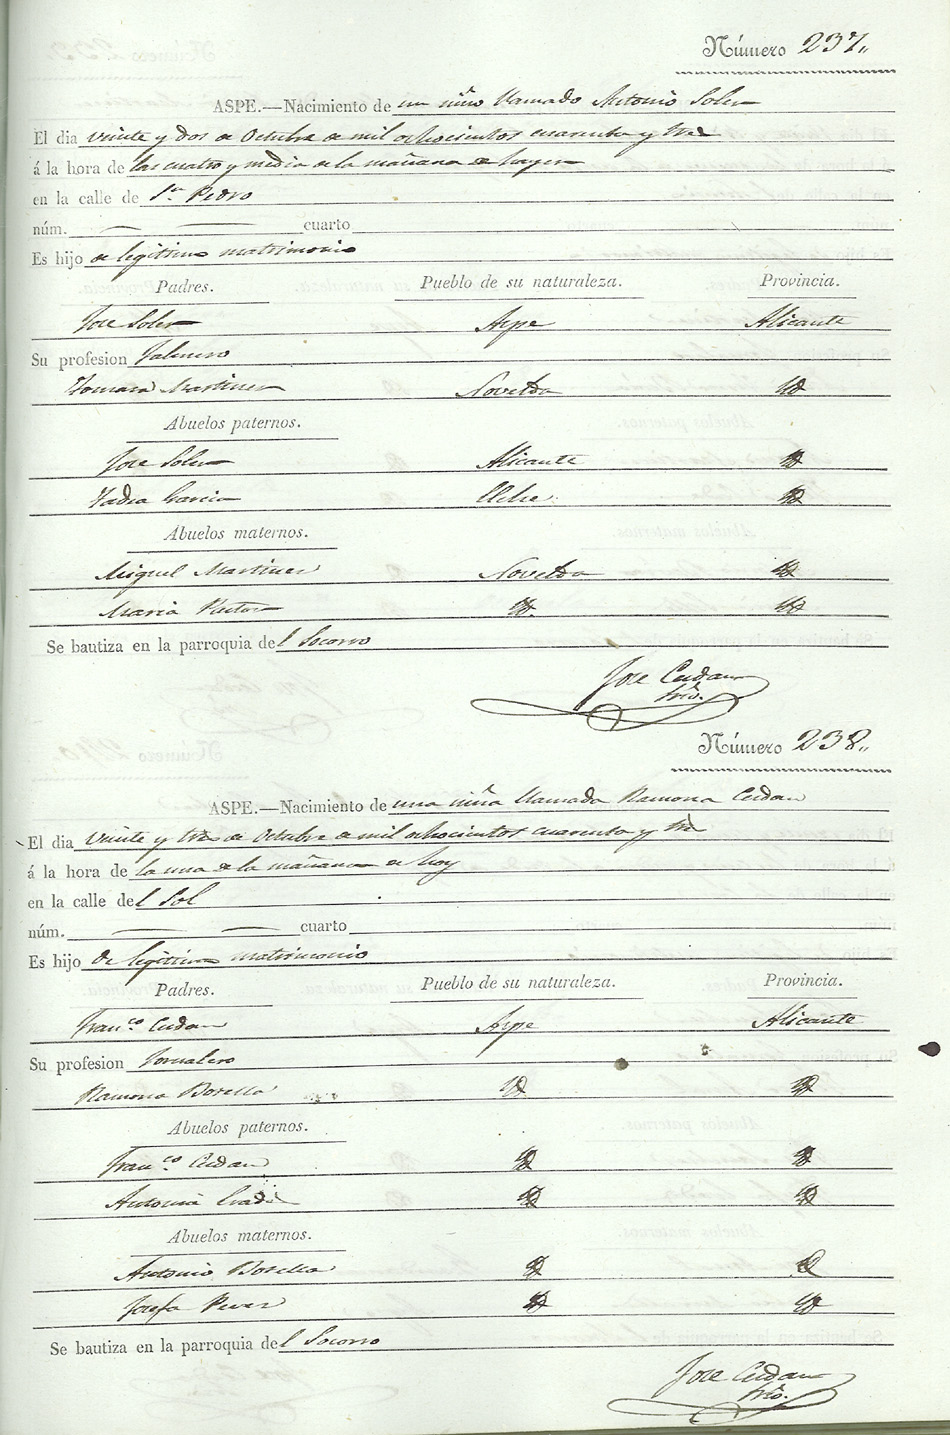 Número 237„
ASPE.—Nacimiento de un niño llamado Antonio Soler
El dia veinte y dos de Octubre de mil ochocientos cuarenta y tres
á la hora de las cuatro y media de la mañana de hayer
en la calle de Sn. Pedro
núm. — — cuarto
Es hijo de legitimo matrimonio
Padres. Pueblo de su naturaleza. Provincia.
Jose Soler Aspe Alicante
Su profesion
Tomasa Martinez Novelda Id
Abuelos paternos.
Jose Soler Alicante Id
Garcia Elche Id
Abuelos maternos.
Miguel Martinez Novelda Id
Maria Id Id
Se bautiza en la parroquia del Socorro
Jose Cerdan
Srio.
Número 238„
ASPE.—Nacimiento de una niña llamada Ramona Cerdan
El dia veinte y tres de Octubre de mil ochocientos cuarenta y tres
á la hora de la una de la mañana de hoy
en la calle del Sol
núm. — — cuarto
Es hijo de legitimo matrimonio
Padres. Pueblo de su naturaleza. Provincia.
Franco. Cerdan Aspe Alicante
Su profesion Jornalero
Ramona Botella Id Id
Abuelos paternos.
Franco. Cerdan Id Id
Antonia Id Id
Abuelos maternos.
Antonio Botella Id Id
Josefa Perez Id Id
Se bautiza en la parroquia del Socorro
Jose Cerdan
Srio.